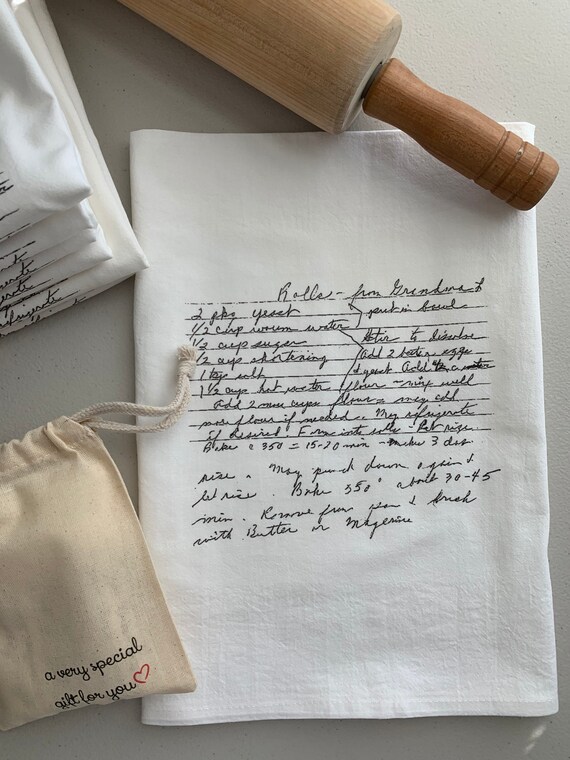 Rolls - from Grandma
2 pkg yeast put in bowl
1/2 cup warm water
1/2 cup sugar Stir to dissolve
1/2 cup shortening Add 2 beaten eggs
1 tsp salt & yeast Add water
1 1/2 cup hot water flour - mix well
Add 2 more cups flour - may add
more flour if needed. May refrigerate
if desired. Form into rolls - Let rise.
Bake @ 350 = 15-20 min - makes 3 doz.
rise. May punch down again &
let rise. Bake 350° about 30-45
min. Remove from pan & brush
with Butter or Margerine
a very special
gift for you